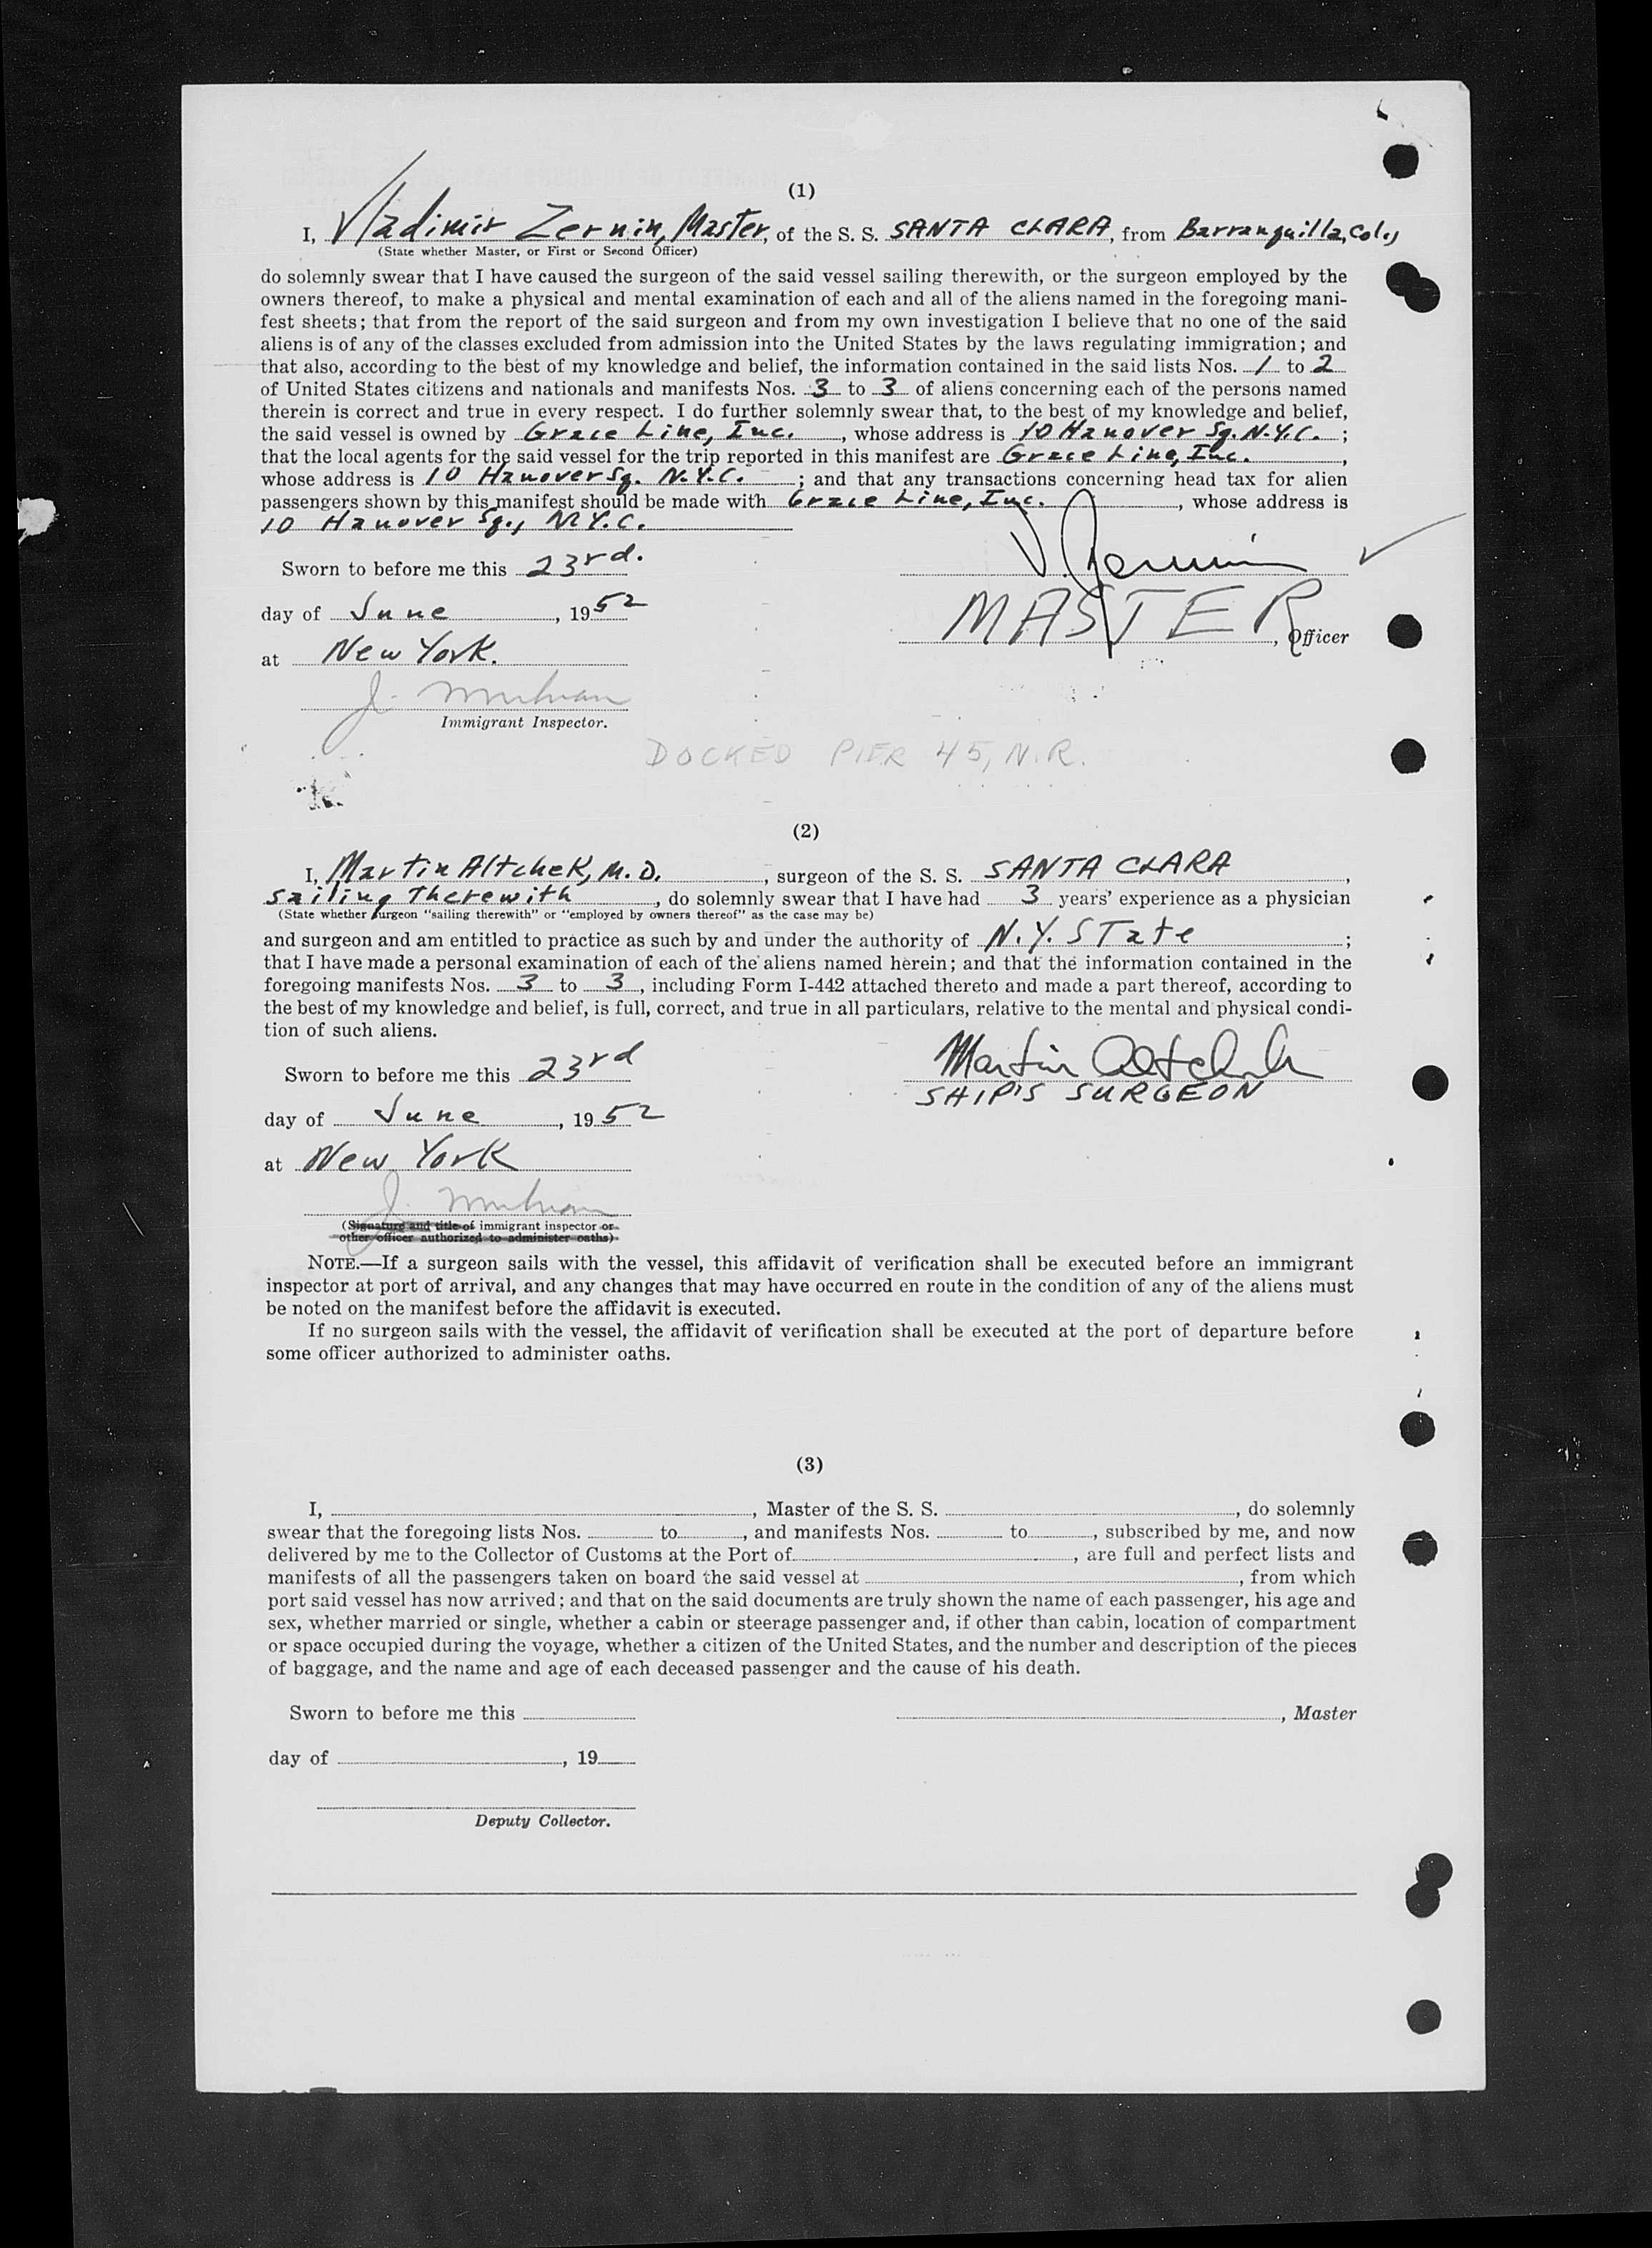 (1)
I, Vladimir Zernin, Master, of the S. S. SANTA CLARA, from Barranquilla, Col.,
(State whether Master, or First or Second Officer)
do solemnly swear that I have caused the surgeon of the said vessel sailing therewith, or the surgeon employed by the
owners thereof, to make a physical and mental examination of each and all of the aliens named in the foregoing mani-
fest sheets; that from the report of the said surgeon and from my own investigation I believe that no one of the said
aliens is of any of the classes excluded from admission into the United States by the laws regulating immigration; and
that also, according to the best of my knowledge and belief, the information contained in the said lists Nos. 1 to 2
of United States citizens and nationals and manifests Nos. 3 to 3 of aliens concerning each of the persons named
therein is correct and true in every respect. I do further solemnly swear that, to the best of my knowledge and belief,
the said vessel is owned by Grace Line, Inc., whose address is 10 Hanover Sq. N.Y.C. ;
that the local agents for the said vessel for the trip reported in this manifest are Grace Line, Inc. ,
whose address is 10 Hanover Sq. N.Y.C. ; and that any transactions concerning head tax for alien
passengers shown by this manifest should be made with Grace Line, Inc. , whose address is
10 Hanover Sq., N.Y.C.
Sworn to before me this 23rd. V. Zernin
day of June , 1952 MASTER , Officer
at New York.
J.
Immigrant Inspector.
DOCKED PIER 45, N.R.
(2)
I, Martin Altchek, M.D. , surgeon of the S. S. SANTA CLARA ,
sailing Therewith , do solemnly swear that I have had 3 years' experience as a physician
(State whether surgeon "sailing therewith" or "employed by owners thereof" as the case may be)
and surgeon and am entitled to practice as such by and under the authority of N.Y. STate ;
that I have made a personal examination of each of the aliens named herein; and that the information contained in the
foregoing manifests Nos. 3 to 3 , including Form I-442 attached thereto and made a part thereof, according to
the best of my knowledge and belief, is full, correct, and true in all particulars, relative to the mental and physical condi-
tion of such aliens.
Sworn to before me this 23rd Martin Altchek
SHIP'S SURGEON
day of June , 1952
at New York
J.
(Signature and title of immigrant inspector or
other officer authorized to administer oaths)
NOTE.—If a surgeon sails with the vessel, this affidavit of verification shall be executed before an immigrant
inspector at port of arrival, and any changes that may have occurred en route in the condition of any of the aliens must
be noted on the manifest before the affidavit is executed.
If no surgeon sails with the vessel, the affidavit of verification shall be executed at the port of departure before
some officer authorized to administer oaths.
(3)
I, , Master of the S. S. , do solemnly
swear that the foregoing lists Nos. to , and manifests Nos. to , subscribed by me, and now
delivered by me to the Collector of Customs at the Port of , are full and perfect lists and
manifests of all the passengers taken on board the said vessel at , from which
port said vessel has now arrived; and that on the said documents are truly shown the name of each passenger, his age and
sex, whether married or single, whether a cabin or steerage passenger and, if other than cabin, location of compartment
or space occupied during the voyage, whether a citizen of the United States, and the number and description of the pieces
of baggage, and the name and age of each deceased passenger and the cause of his death.
Sworn to before me this , Master
day of , 19
Deputy Collector.